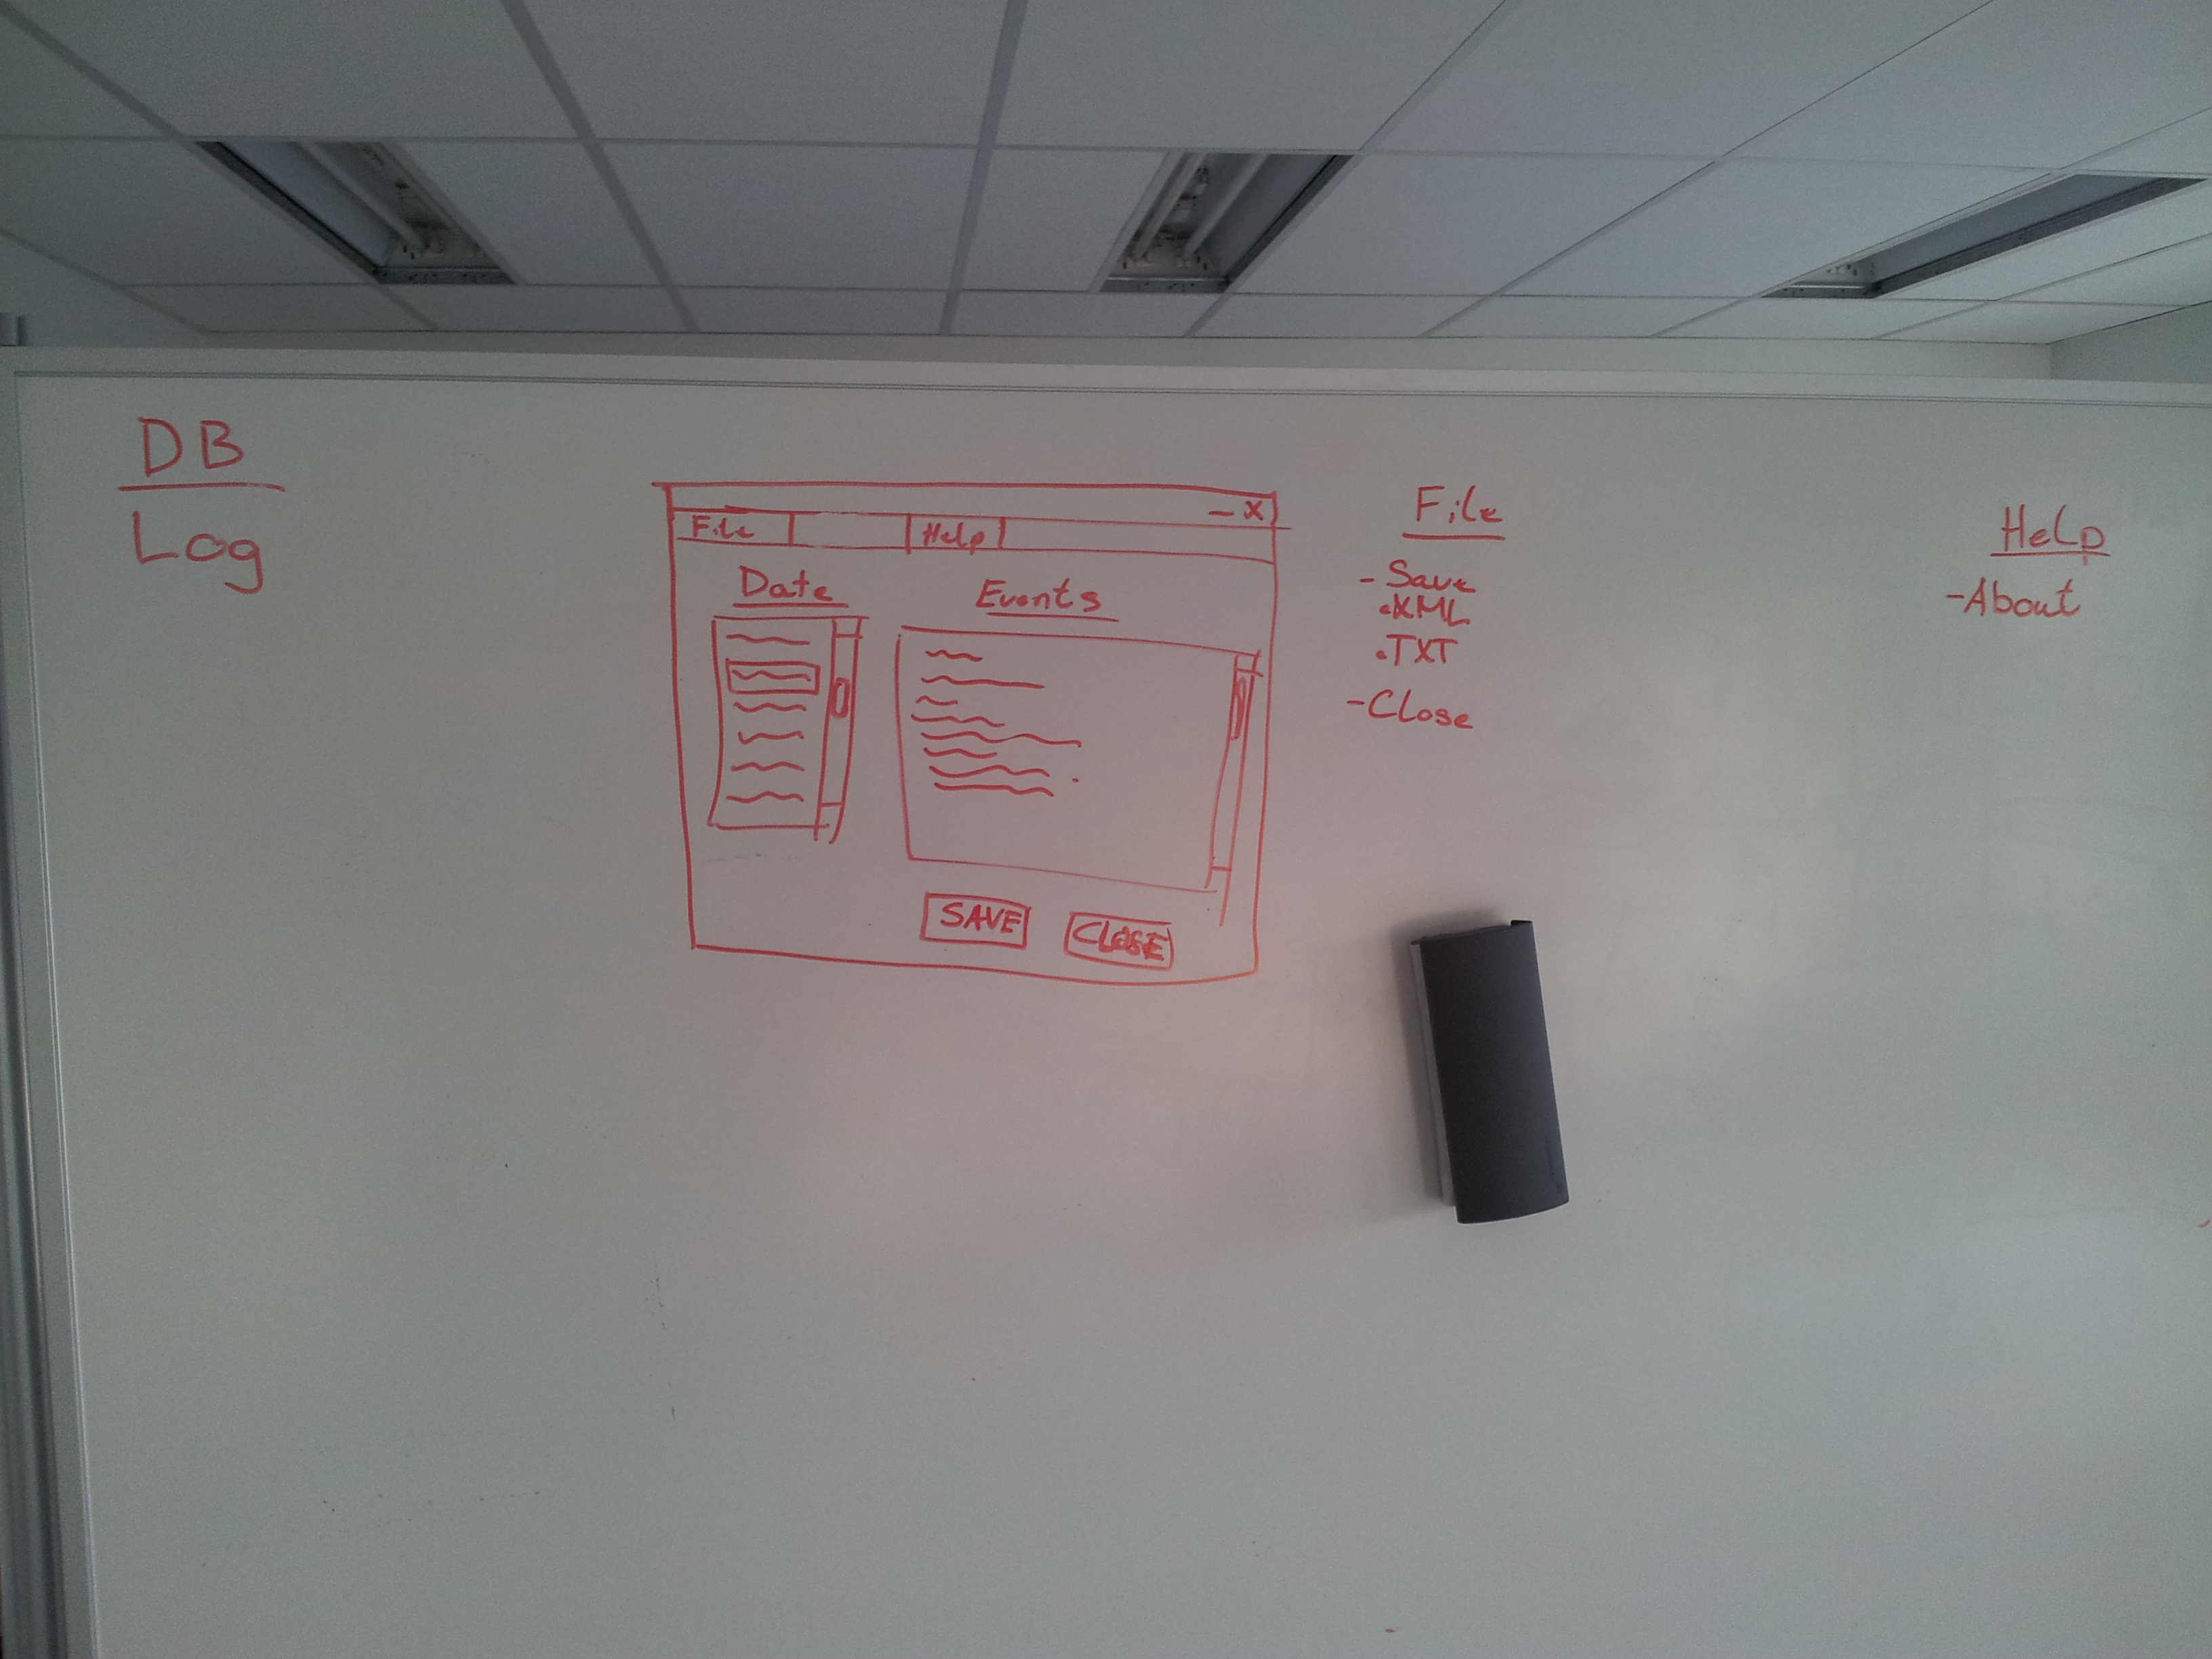 DB
Log
- X
File Help
Date Events
SAVE CLOSE
File
- Save
• XML
• TXT
- Close
Help
- About